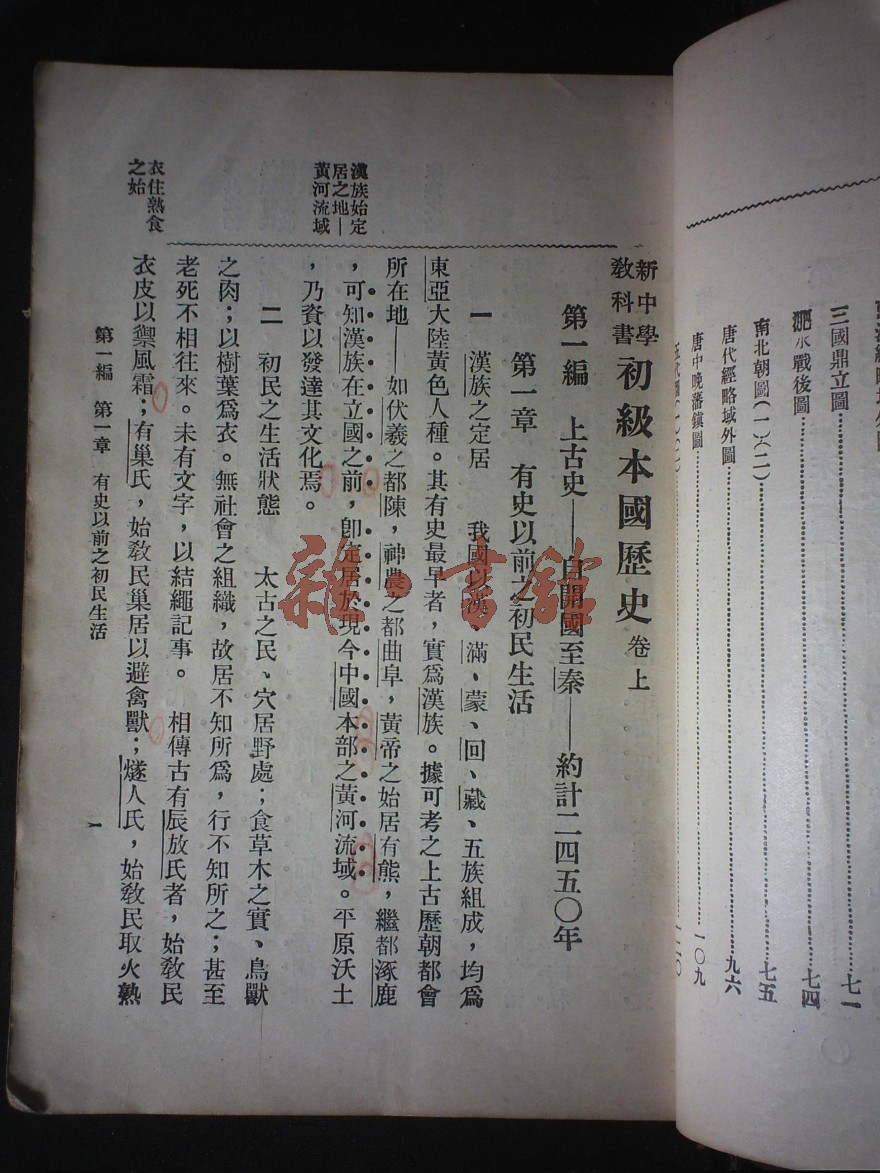 三國鼎立圖……七一
淝水戰後圖……七四
南北朝圖(一)(二)……七五
唐代經略域外圖……九六
唐中晚藩鎮圖……一〇九
新中學
教科書
初級本國歷史 卷上
第一編 上古史——自開國至秦——約計二四五〇年
第一章 有史以前之初民生活
漢族始定
居之地—
黃河流域
一 漢族之定居 我國以漢、滿、蒙、回、藏、五族組成,均爲
東亞大陸黃色人種。其有史最早者,實爲漢族。據可考之上古歷朝都會
所在地——如伏羲之都陳,神農之都曲阜,黃帝之始居有熊,繼都涿鹿
,可知漢族在立國之前,卽定居於現今中國本部之黃河流域。平原沃土
,乃資以發達其文化焉。
二 初民之生活狀態 太古之民、穴居野處;食草木之實、鳥獸
之肉;以樹葉爲衣。無社會之組織,故居不知所爲,行不知所之;甚至
老死不相往來。未有文字,以結繩記事。 相傳古有辰放氏者,始敎民
衣住熟食
之始
衣皮以禦風霜;有巢氏,始敎民巢居以避禽獸;燧人氏,始敎民取火熟
第一編 第一章 有史以前之初民生活
一
雜·書館